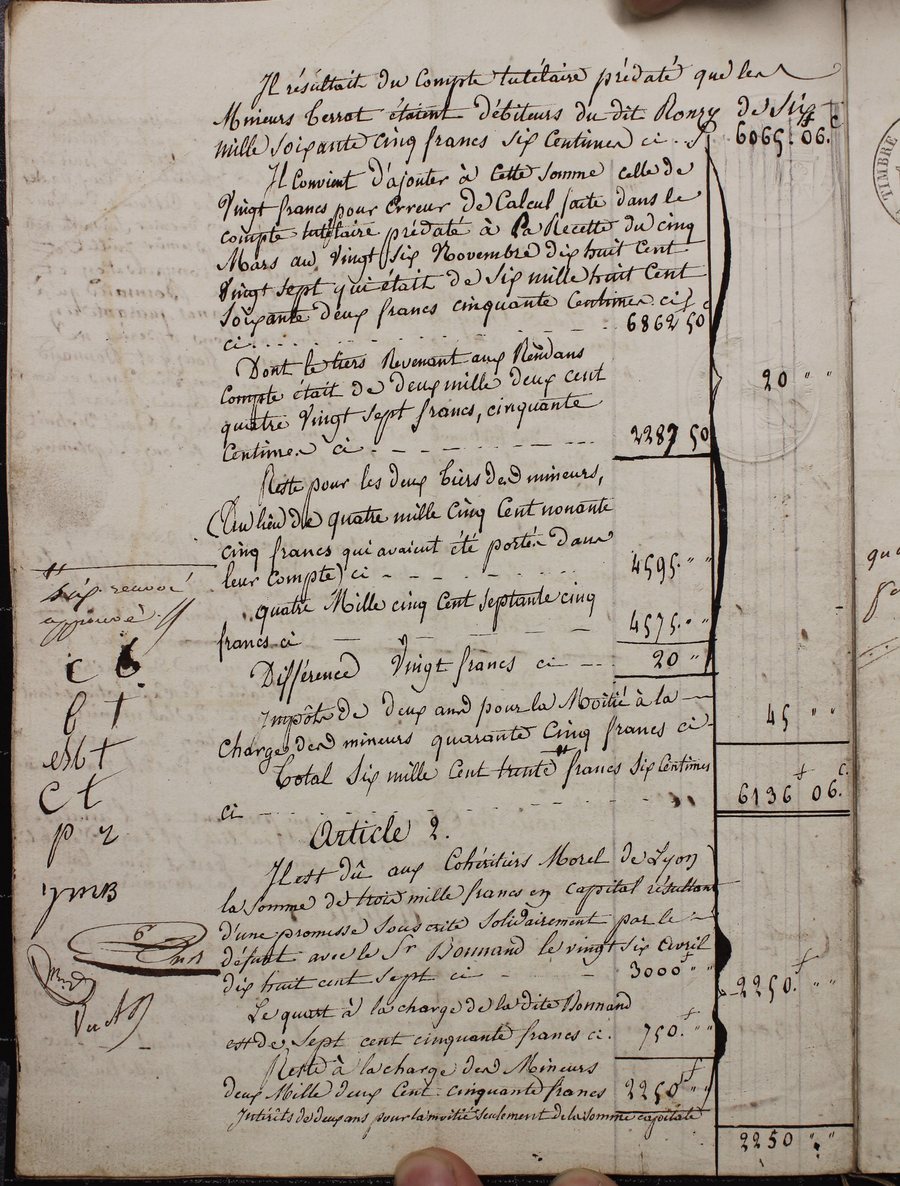 Il résultait du Compte tutélaire prédaté que les
Mineurs Terrot étaient débiteurs du dit Ronzy de Six
mille soixante cinq francs six Centimes ci . 6065 . 06 . c
Il Convient d'ajouter à cette somme celle de
Vingt francs pour Erreur de Calcul faite dans le
compte tutélaire prédaté à la Recette du cinq
Mars au Vingt Six Novembre dix huit Cent
Vingt sept qui était de Six mille huit Cent
Soixante deux francs cinquante Centimes ci
ci . . . . 6862 50
Dont le tiers Revenant aux Rendans
Compte était de deux mille deux cent 20 " "
quatre Vingt Sept francs, cinquante
Centimes ci . 2287 50
Reste pour les deux tiers des mineurs,
(Au lieu de quatre mille Cinq Cent nonante
cinq francs qui avaient été portés dans
leur Compte) ci 4595 . " "
quatre Mille cinq Cent Septante cinq
francs ci 4575 . " "
Différence Vingt francs ci 20 "
Impôts de deux ans pour la Moitié à la 45 " "
charge des mineurs quarante Cinq francs ci
Total Six mille Cent trente " francs six Centimes
ci 6136 06 . c.
Article 2.
Il est dû aux Cohéritiers Morel de Lyon
la somme de trois mille francs en capital résultant
d'une promesse souscrite solidairement par le
défunt avec le Sr Bonnand le vingt six avril
dix huit cent sept ci 3000 " " 2250 . " "
Le quart à la charge de la dite Bonnand
est de Sept cent cinquante francs ci . 750 . " "
Reste à la charge des Mineurs
deux Mille deux Cent cinquante francs 2250 " "
Intérêts de deux ans pour la moitié seulement de la somme capitale
2250 " "
" six renvoi
approuvé //
c b
b t
c t
p r
ymB
TIMBRE